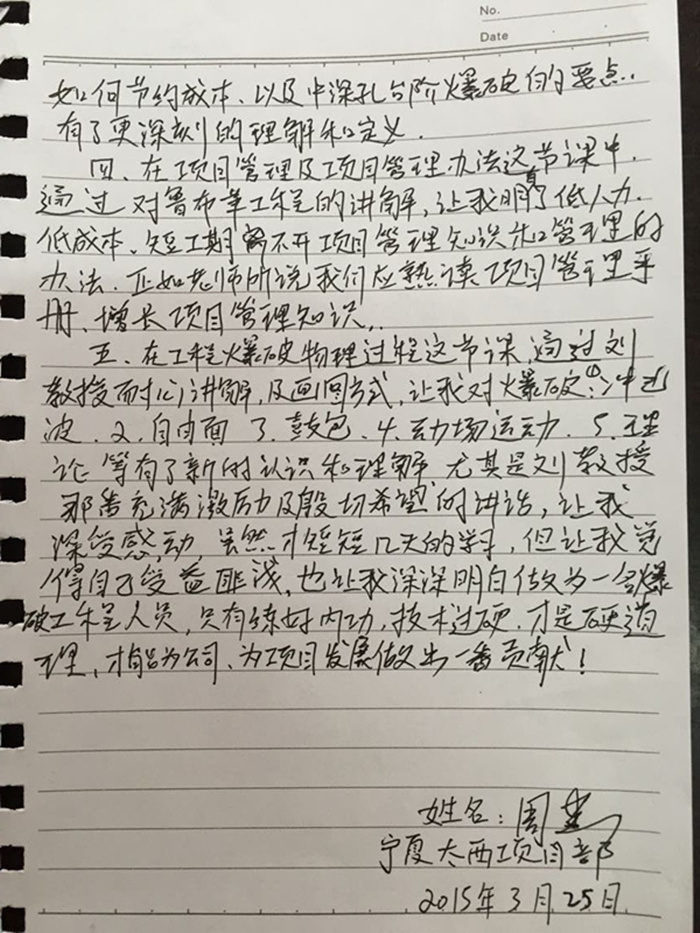 No.
Date
如何节约成本、以及中深孔台阶爆破的要点..
有了更深刻的理解和定义.
四、在项目管理及项目管理办法这节课中.
通过对鲁布革工程的讲解,让我明了低人力.
低成本、短工期离不开项目管理知识和管理的
办法.正如老师所说我们应熟读项目管理手
册、增长项目管理知识..
五、在工程爆破物理过程这节课,通过刘
教授耐心讲解,及画图方式,让我对爆破①冲击
波.2.自由面 3.鼓包.4.动场运动.5.理
论等有了新的认识和理解 尤其是刘教授
那番充满激励及殷切希望的讲话,让我
深受感动,虽然才短短几天的学习,但让我觉
得自己受益匪浅,也让我深深明白做为一名爆
破工程人员,只有练好内功,技术过硬.才是硬道
理,才能为公司、为项目发展做出一番贡献!
姓名:周
宁夏太西项目部
2015年3月25日